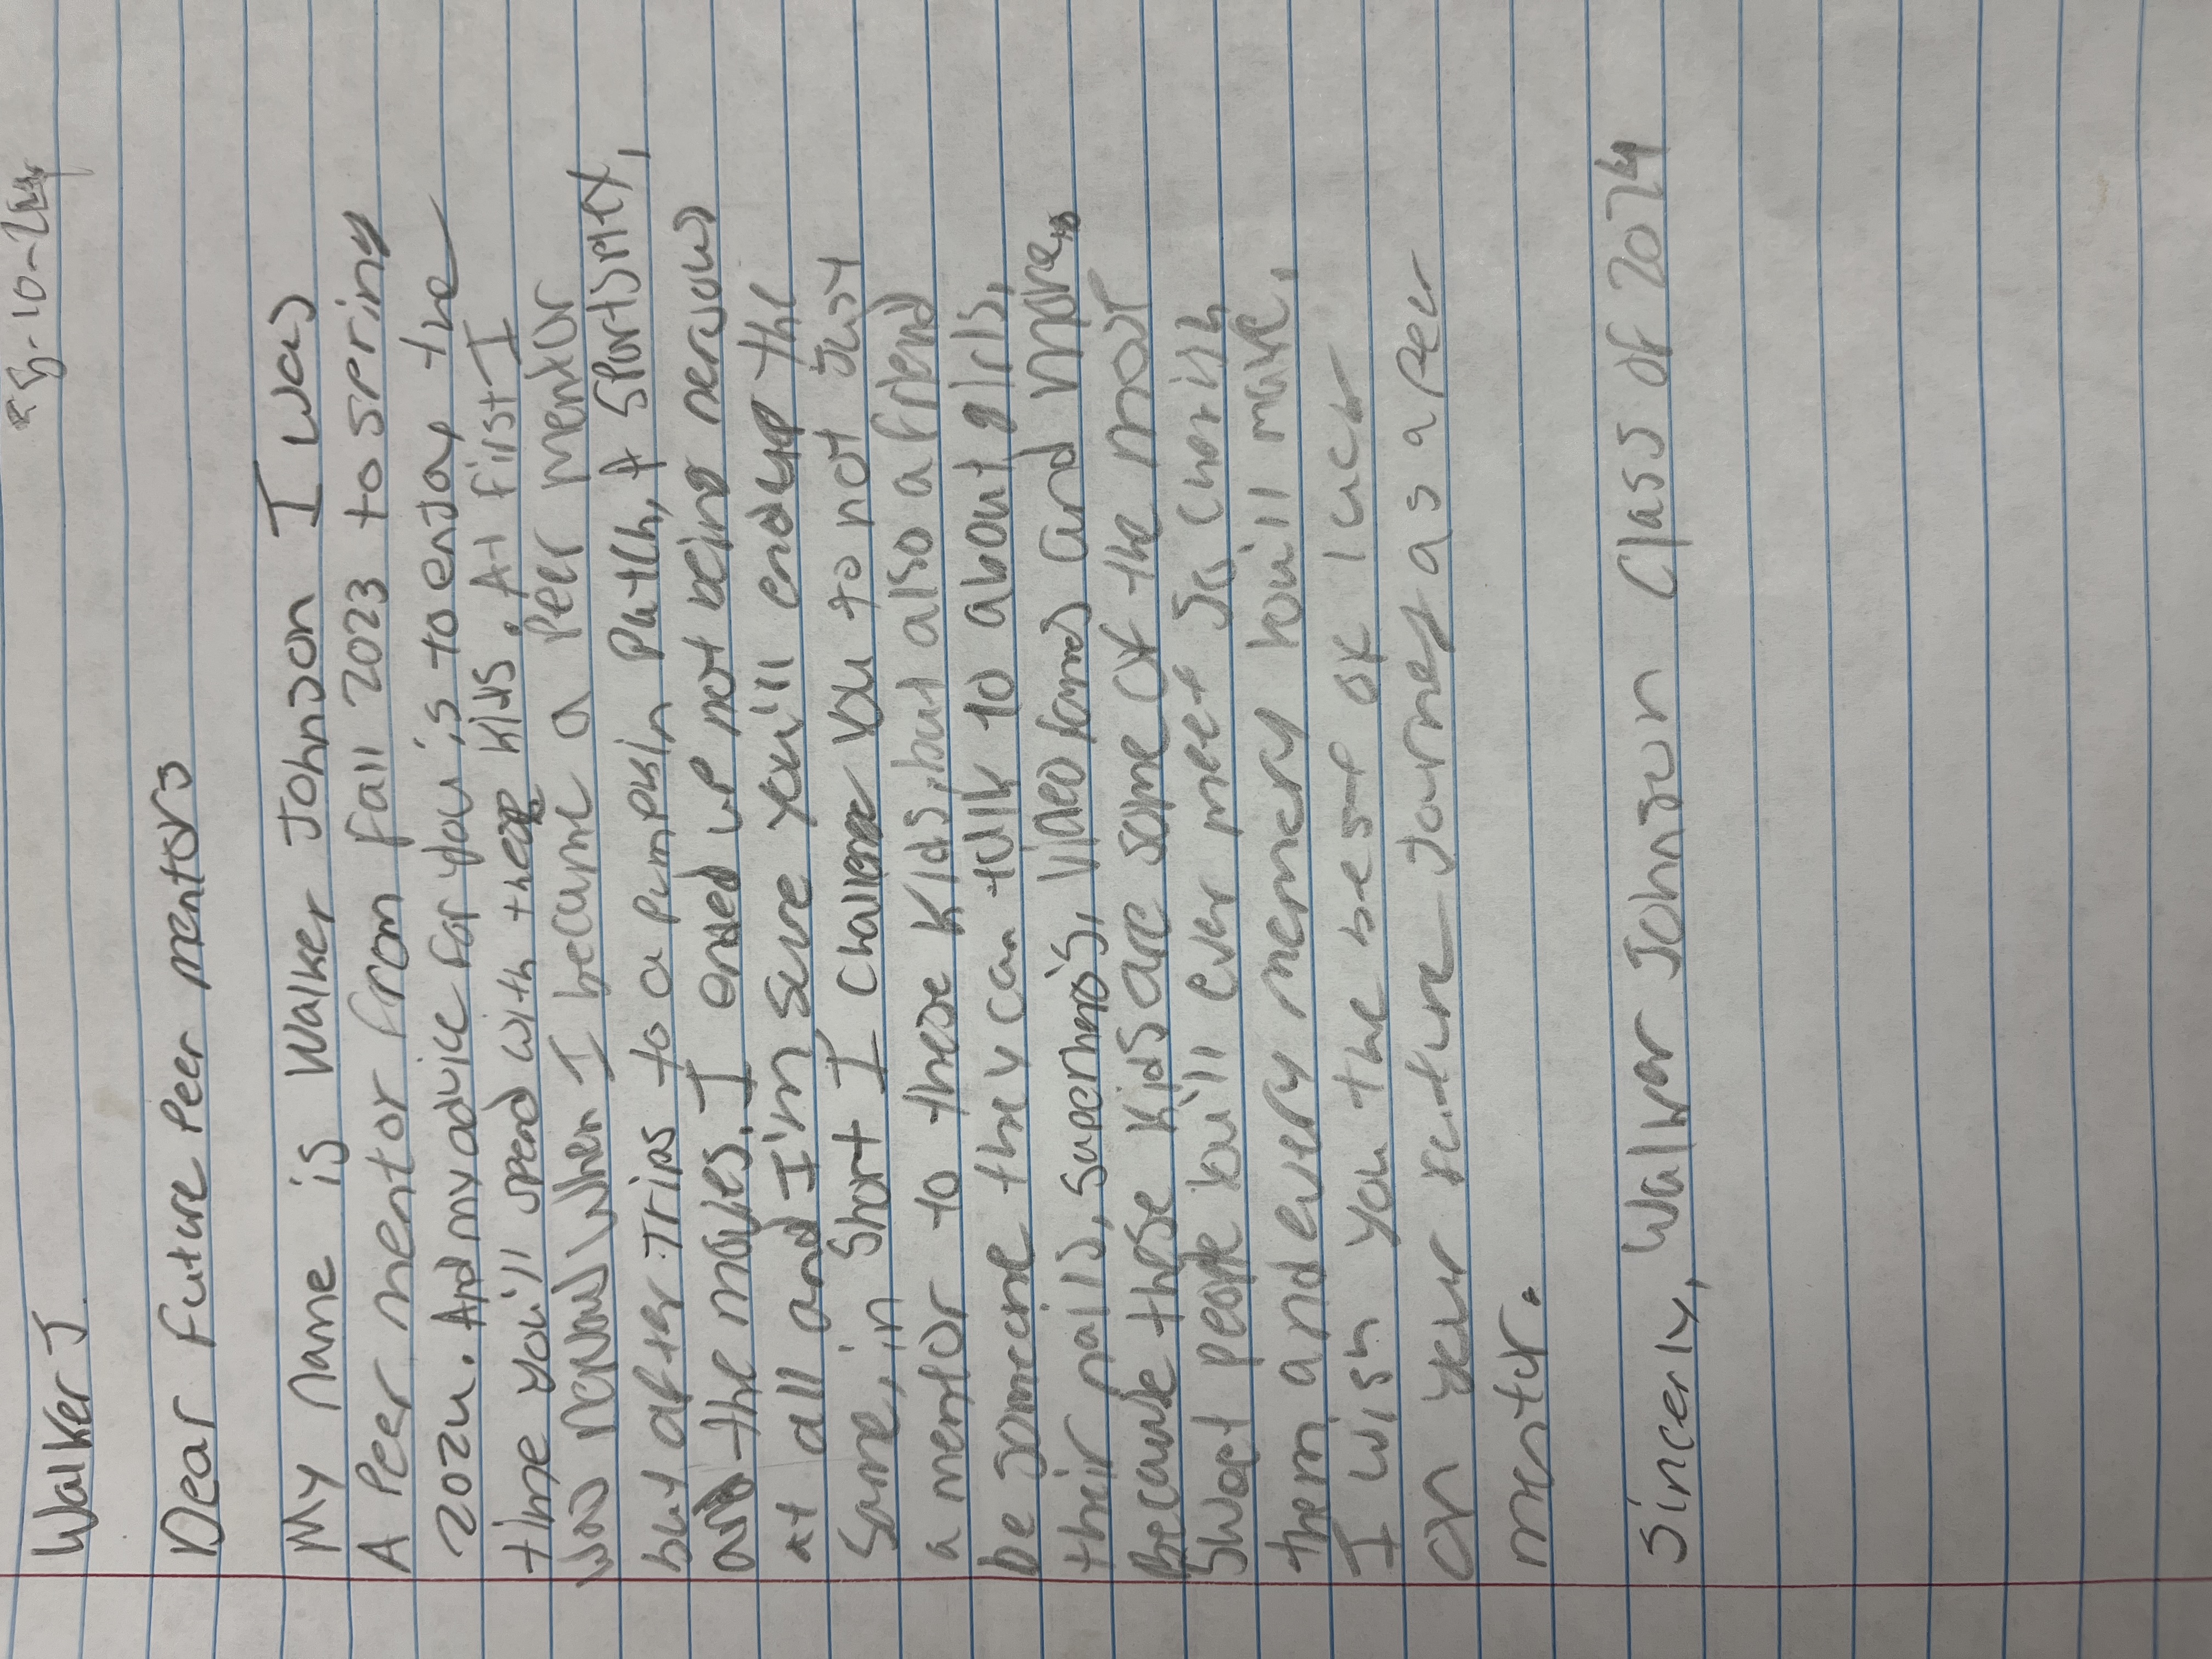 Walker J
5-10-24
Dear Future Peer mentors
My name is Walker Johnson I was
A Peer mentor from fall 2023 to spring
2024. And my advice for you is to enjoy the
time you'll spend with these kids. At first I
was nervous when I became a Peer mentor
but after trips to a pumpkin patch, A Sportsplex,
and the movies. I ended up not being nervous
at all and I'm sure you'll end up the
same, in short I challenge you to not just
a mentor to these kids, but also a friend
be someone they can talk to about girls,
their nails, superhero's, video games and more,
because these kids are some of the most
sweet people you'll ever meet so cherish
them and every memory you'll make.
I wish you the best of luck
on your future Journey as a Peer
mentor.
Sincerly, Walker Johnson Class of 2024